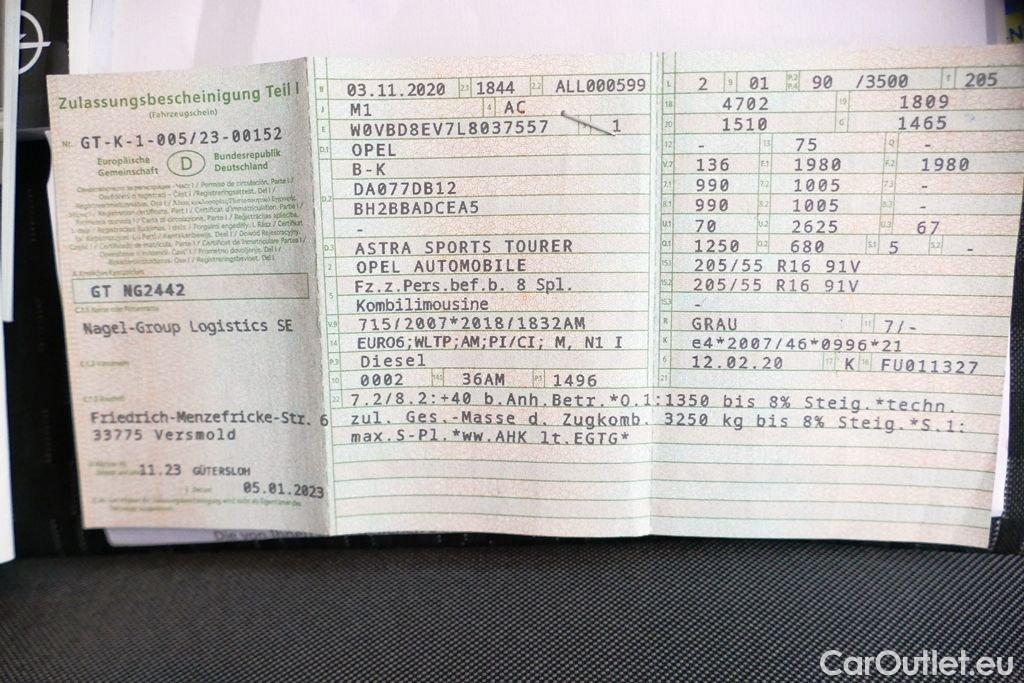 Zulassungsbescheinigung Teil I
(Fahrzeugschein)
Nr. GT-K-1-005/23-00152
Europäische Gemeinschaft
D
Bundesrepublik Deutschland
GT NG2442
Nagel-Group Logistics SE
Friedrich-Menzefricke-Str. 6
33775 Versmold
11.23 GÜTERSLOH
05.01.2023
B 03.11.2020 2.1 1844 2.2 ALL000599
J M1 4 AC
E W0VBD8EV7L8037557 1
D.1 OPEL
B-K
DA077DB12
D.2 BH2BBADCEA5
-
D.3 ASTRA SPORTS TOURER
2 OPEL AUTOMOBILE
5 Fz.z.Pers.bef.b. 8 Spl.
Kombilimousine
V.9 715/2007*2018/1832AM
14 EURO6;WLTP;AM;PI/CI; M, N1 I
P.3 Diesel
10 0002 14.1 36AM P.1 1496
L 2 9 01 P.2 P.4 90 /3500 T 205
18 4702 19 1809
20 1510 G 1465
12 - 13 75 Q -
V.7 136 F.1 1980 F.2 1980
7.1 990 7.2 1005 7.3 -
8.1 990 8.2 1005 8.3 -
U.1 70 U.2 2625 U.3 67
O.1 1250 O.2 680 S.1 5 S.2 -
15.1 205/55 R16 91V
15.2 205/55 R16 91V
15.3 -
R GRAU 11 7/-
K e4*2007/46*0996*21
6 12.02.20 17 K 16 FU011327
21
22 7.2/8.2:+40 b.Anh.Betr.*O.1:1350 bis 8% Steig.*techn.
zul. Ges.-Masse d. Zugkomb. 3250 kg bis 8% Steig.*S.1:
max.S-Pl.*ww.AHK lt.EGTG*
CarOutlet.eu